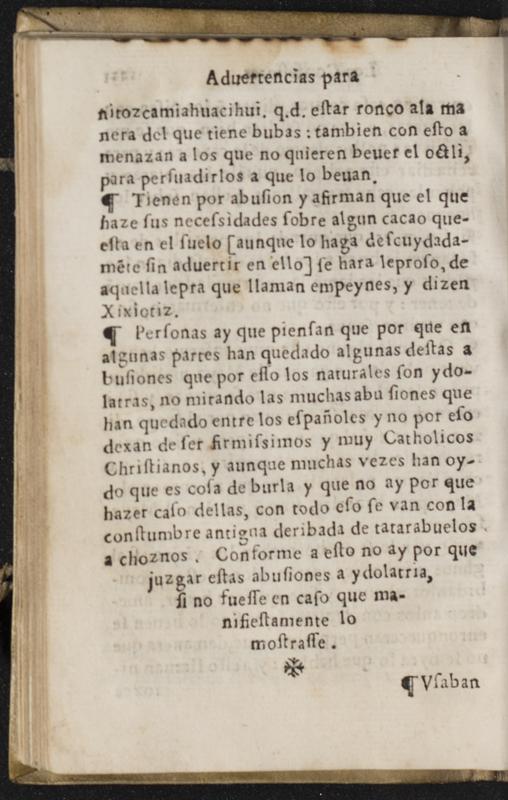 Aduertencias para
nitozcamiahuacihui. q.d. eſtar ronco ala ma
nera del que tiene bubas : tambien con eſto a
menazan a los que no quieren beuer el octli,
para perſuadirlos a que lo beuan.
¶ Tienen por abuſion y afirman que el que
haze ſus neceſsidades ſobre algun cacao que-
eſta en el ſuelo [aunque lo haga deſcuydada-
mẽte ſin aduertir en ello] ſe hara leproſo, de
aquella lepra que llaman empeynes, y dizen
Xixiotiz.
¶ Perſonas ay que pienſan que por que en
algunas partes han quedado algunas deſtas a
buſiones que por eſſo los naturales ſon ydo-
latras, no mirando las muchas abu ſiones que
han quedado entre los eſpañoles y no por eſo
dexan de ſer firmiſsimos y muy Catholicos
Chriſtianos, y aunque muchas vezes han oy-
do que es coſa de burla y que no ay por que
hazer caſo dellas, con todo eſo ſe van con la
conſtumbre antigua deribada de tatarabuelos
a choznos . Conforme a eſto no ay por que
juzgar eſtas abuſiones a ydolatria,
ſi no fueſſe en caſo que ma-
nifieſtamente lo
moſtraſſe .
¶ Vſaban